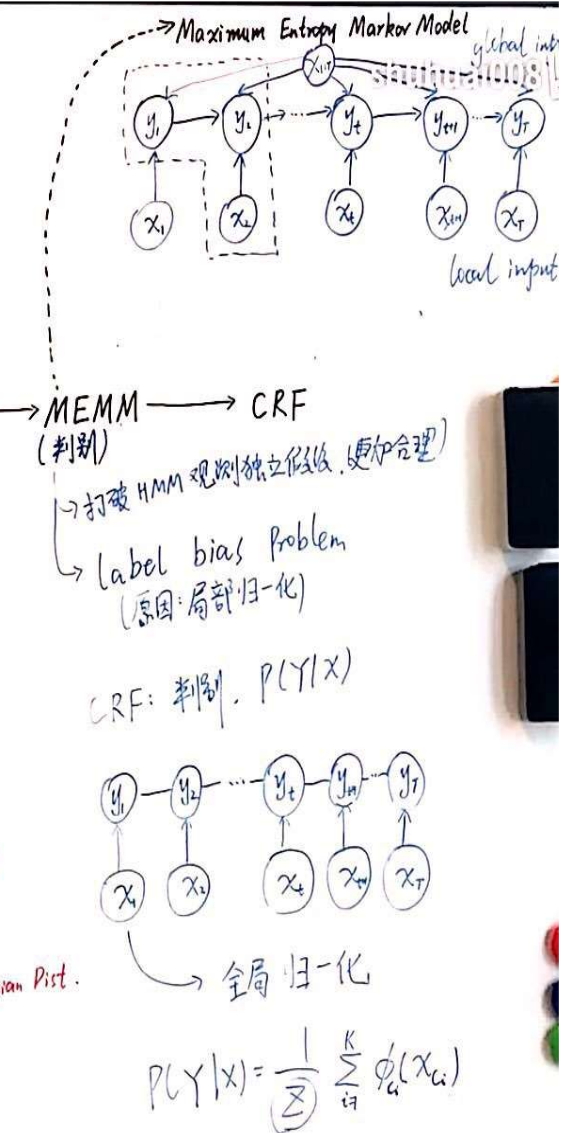 Maximum Entropy Markov Model
global
shuhuai008
x₁:T
y₁ y₂ ... yₜ yₜ₊₁ ... y_T
x₁ x₂ xₜ xₜ₊₁ x_T
local input
MEMM → CRF
(判别)
打破 HMM 观测独立假设, 更加合理)
label bias Problem
(原因: 局部归一化)
CRF: 判别. P(Y|X)
y₁ y₂ ... yₜ yₜ₊₁ ... y_T
x₁ x₂ xₜ xₜ₊₁ x_T
ian Dist.
全局归一化
P(Y|X) = 1/Z Σ ϕ_ci(x_ci)